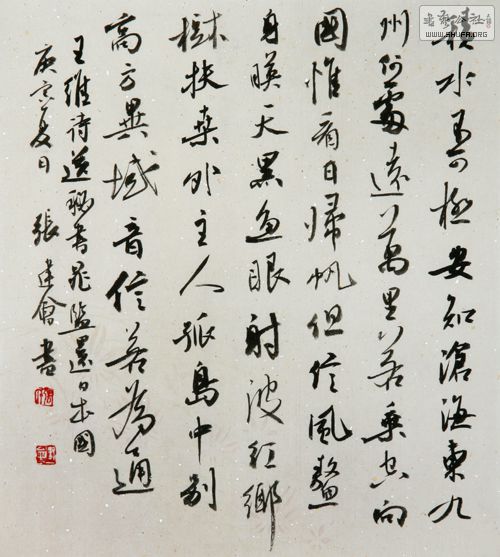 積水不可極安知滄海東九
州何處遠萬里若乘空向
國惟看日歸帆但信風鰲
身暎天黑魚眼射波紅鄉
樹扶桑外主人孤島中別
离方異域音信若為通
王維诗送秘書晁監還日本國
庚寅夏日 張建會書
书艺公社
WWW.SHUFA.ORG